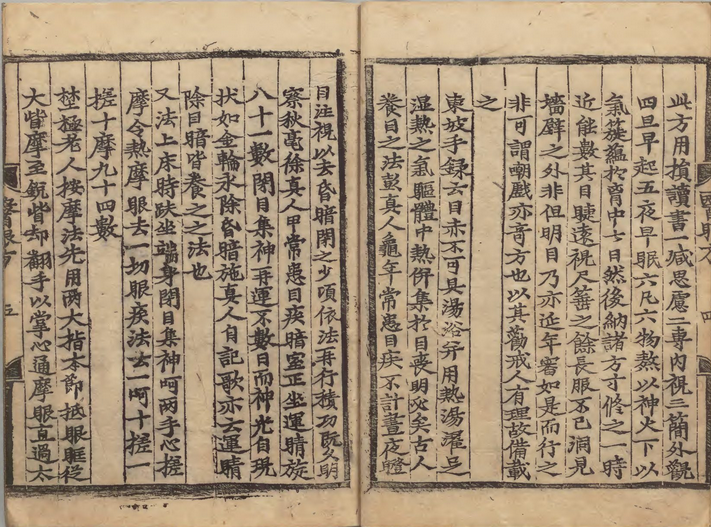 此方用損讀書一減思慮二專內視三簡外觀
四旦早起五夜早眠六凡六物熬以神火下以
氣蓰蘊於胷中七日然後納諸方寸修之一時
近能數其目睫遠視尺箠之餘長服不已洞見
墻壁之外非但明目乃亦延年審如是而行之
非可謂嘲戲亦竒方也以其勸戒人有理故備載
之
東坡手録云目亦不可具湯浴并用熱湯濯足
濕熱之氣驅體中熱併集於目喪明必矣古人
養目之法彭真人龜年常患目疾不計晝夜瞪
目注視以去昏暗閉之少頃依法再行積功旣久明
察秋毫徐真人甲常患目疾暗室正坐運睛旋
八十一數閉目集神再運不數日而神光自現
狀如金輪永除昏暗施真人自記歌亦云運睛
除目暗皆養之之法也
又法上床時趺坐端身閉目集神呵兩手心搓
摩令熱摩眼去一切眼疾法云一呵十搓一
搓十摩九十四數
埜極老人按摩法先用兩大指本節抵眼眶從
大眥摩至銳眥却翻手以掌心通摩眼直過太
醫眼方 四
五